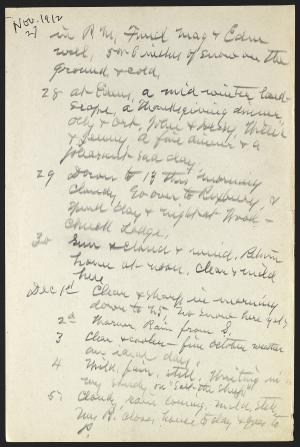 Nov. 1912
27
in P.M, Find Mag & Eden
well, 5 or 6 inches of snow on the
ground, & cold,
28 at Edens, a mid-winter land-
scape, a Thanksgiving dinner,
& Jenny a fine dinner & a
pleasant sad day.
29 Down to 18 this morning
Cloudy Go over to Roxbury, &
spend day & night at Wood-
chuck Lodge.
30 Sun & cloud & wind. Return
home at noon. Clear & mild
here
Dec 1st Clear & sharp in morning
down to 25°, No snow here yet,
2d Warmer, Rain from S.
3 Clear & cooler - fine October weather
an ideal day,
4 Mild, fair, still. Writing in
my study, on
5 Cloudy, rain coming, mild, still,
Mrs B. closes house to day & goes to
P.